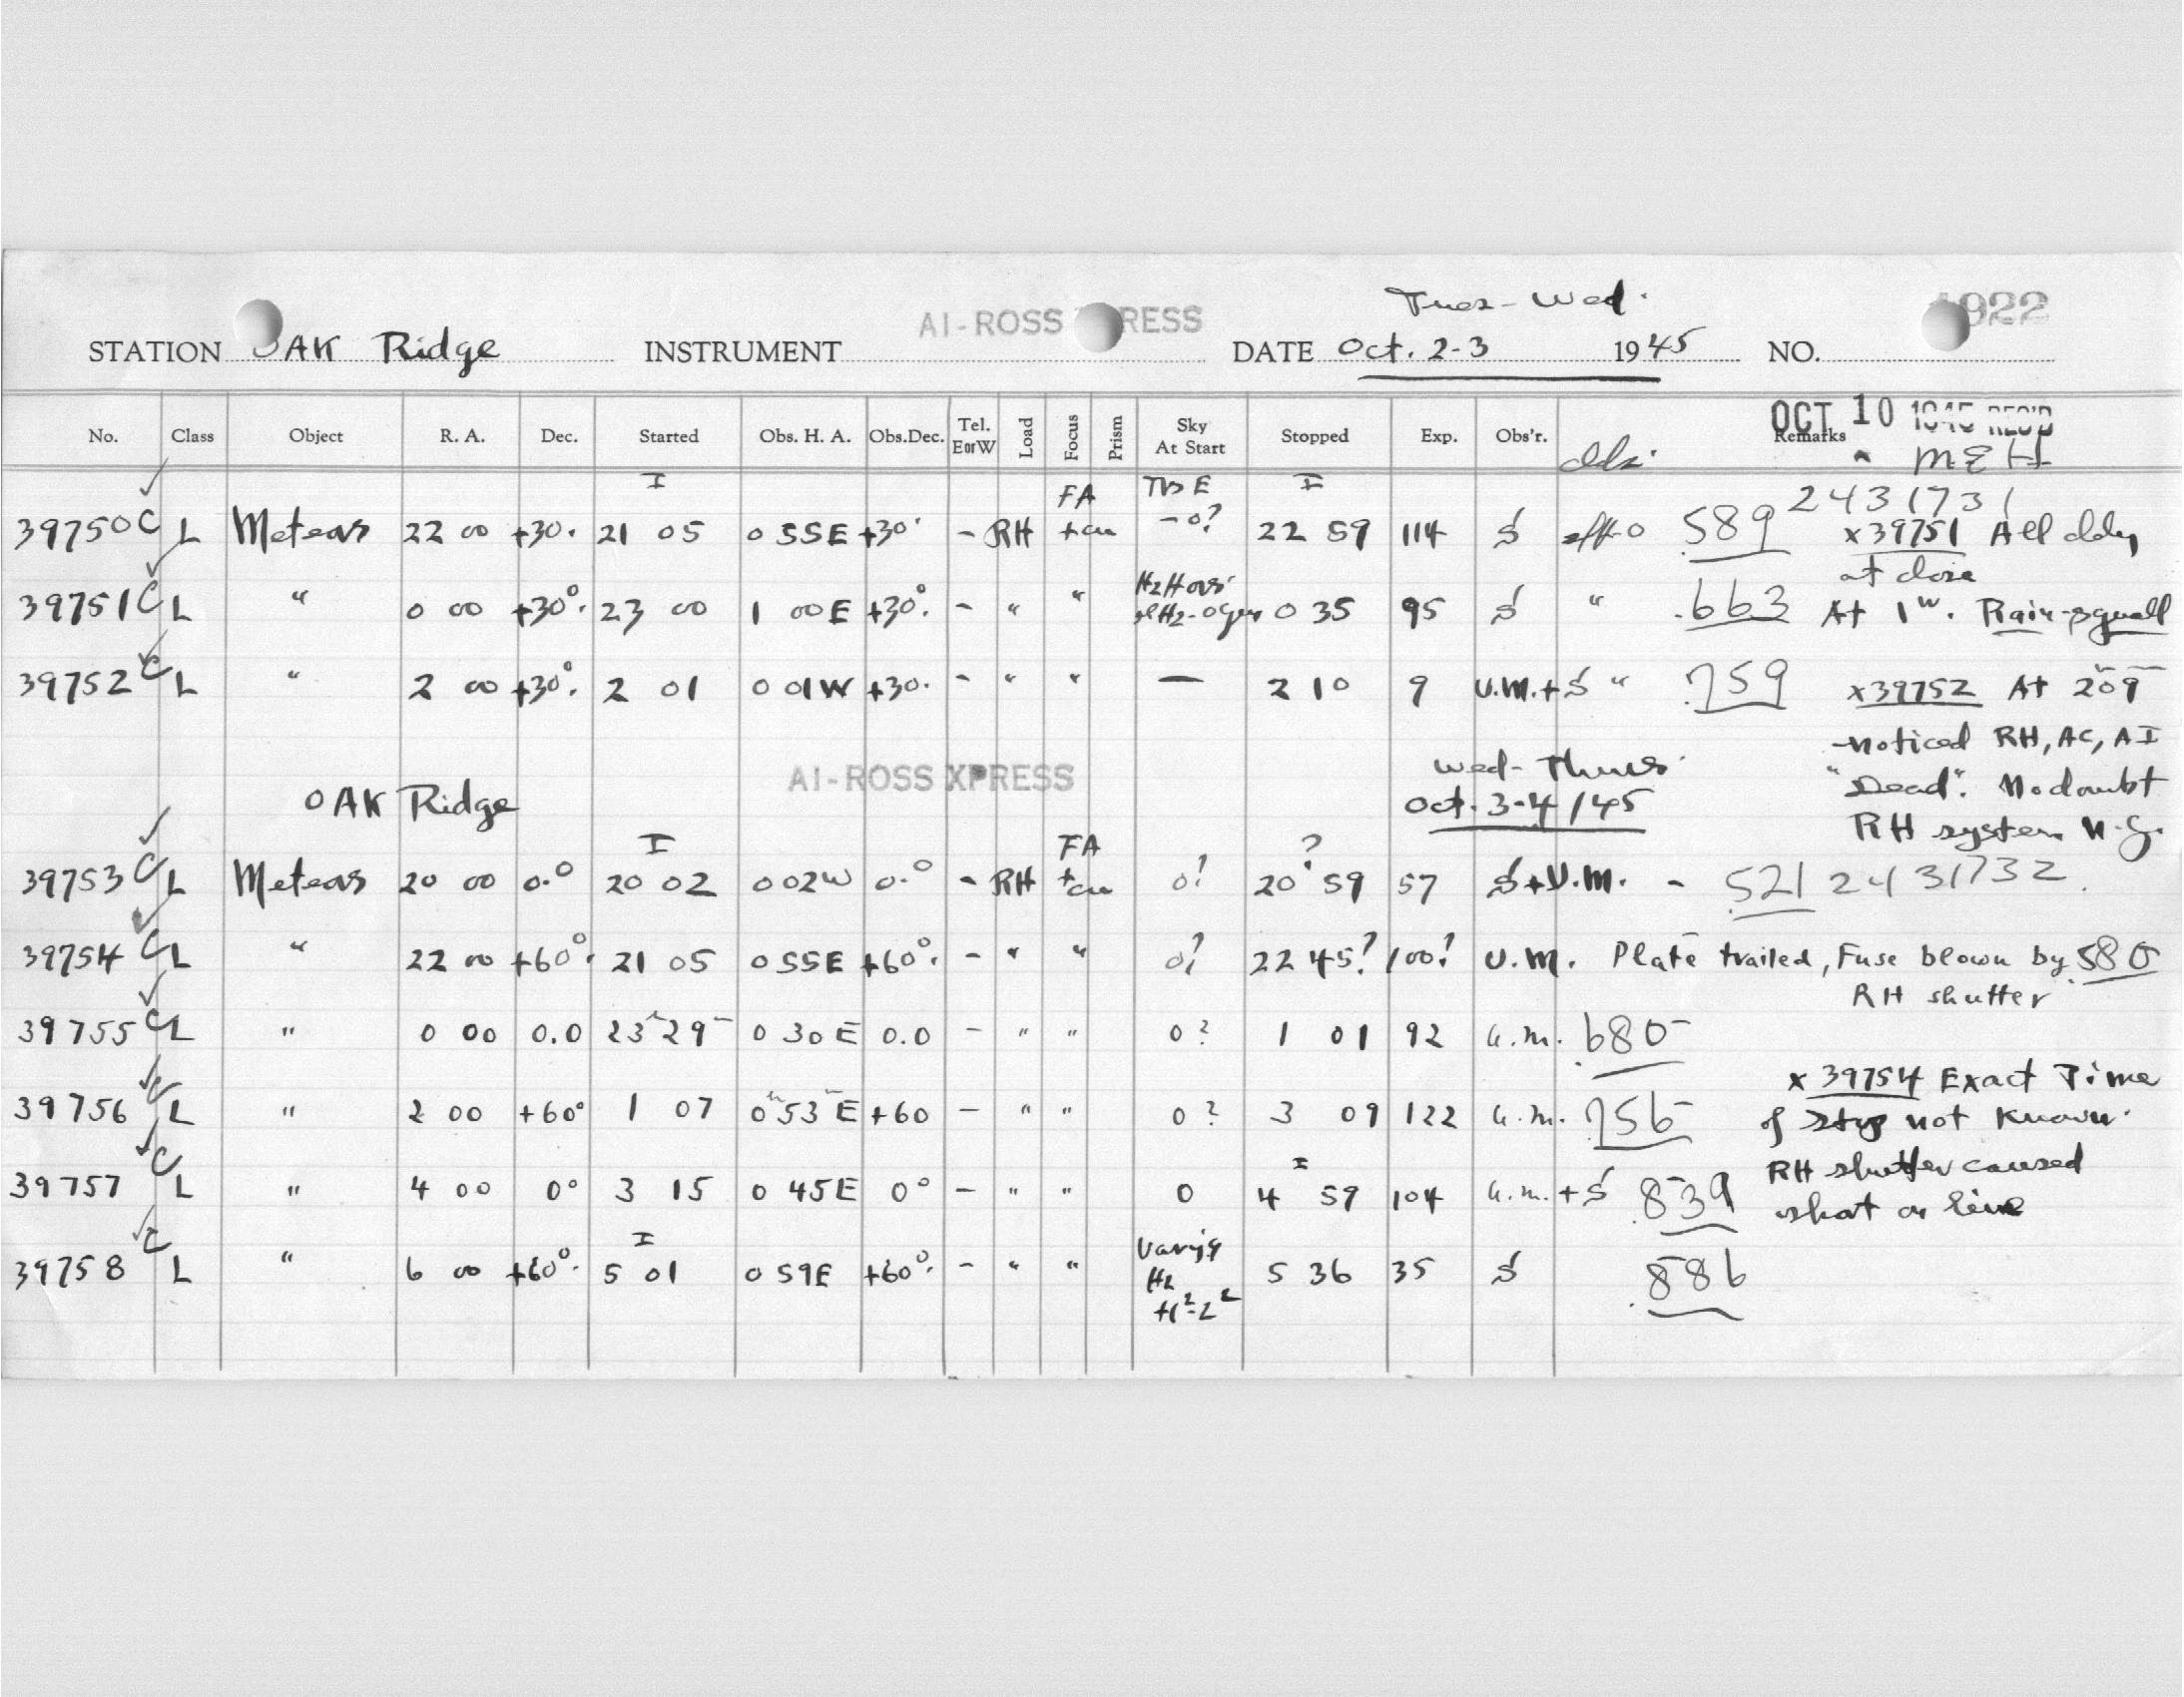 Tues-Wed.
STATION OAK Ridge INSTRUMENT AI-ROSS XPRESS DATE Oct. 2-3 1945 NO. 922
OCT 10 1945 REC'D
No. Class Object R. A. Dec. Started Obs. H. A. Obs.Dec. Tel. E or W Load Focus Prism Sky At Start Stopped Exp. Obs'r. Remarks
MEH
I FA I 2431731
39750 C L Meteors 22 00 +30° 21 05 0 55E +30° - RH +cu -0? 22 59 114 S .589 x39751 All ddy
at close
39751 C L " 0 00 +30° 23 00 1 00E +30° - " " 0 35 95 S " .663 At 1w. Rain-squall
39752 C L " 2 00 +30° 2 01 0 01W +30° - " " — 2 10 9 U.M.+S " .759 x39752 At 2 09
-noticed RH, AC, AI
AI-ROSS XPRESS Wed-Thurs.
OAK Ridge Oct. 3-4/45 "Dead". No doubt
RH system N.G.
I FA ?
39753 C L Meteors 20 00 0.° 20 02 0 02W 0.° - RH +cu 0? 20 59 57 S+U.M. - .521 2431732
39754 C L " 22 00 +60° 21 05 0 55E +60° - " " 0? 22 45? 100? U.M. Plate trailed, Fuse blown by .580
RH shutter
39755 C L " 0 00 0.0 23 29 0 30E 0.0 - " " 0? 1 01 92 U.M. .680
x 39754 Exact Time
39756 C L " 2 00 +60° 1 07 0 53E +60 - " " 0? 3 09 122 U.M. .756 of stop not known.
I RH shutter caused
39757 C L " 4 00 0° 3 15 0 45E 0° - " " 0 4 59 104 U.M.+S .839 short on line
I Varyg
39758 C L " 6 00 +60° 5 01 0 59E +60° - " " Hz 5 36 35 S .886